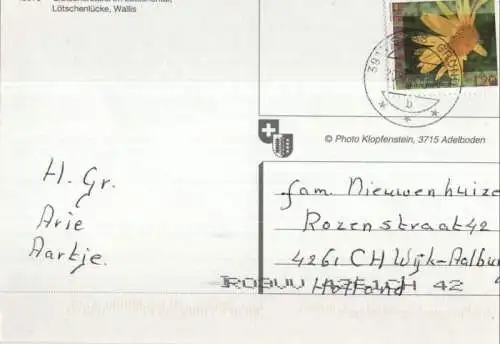 Lötschenlücke, Wallis
© Photo Klopfenstein, 3715 Adelboden
H. Gr.
Arie
Aartje.
fam. Nieuwenhuize
Rozenstraat 42
4261 CH Wijk-Aalbu
Holland
42